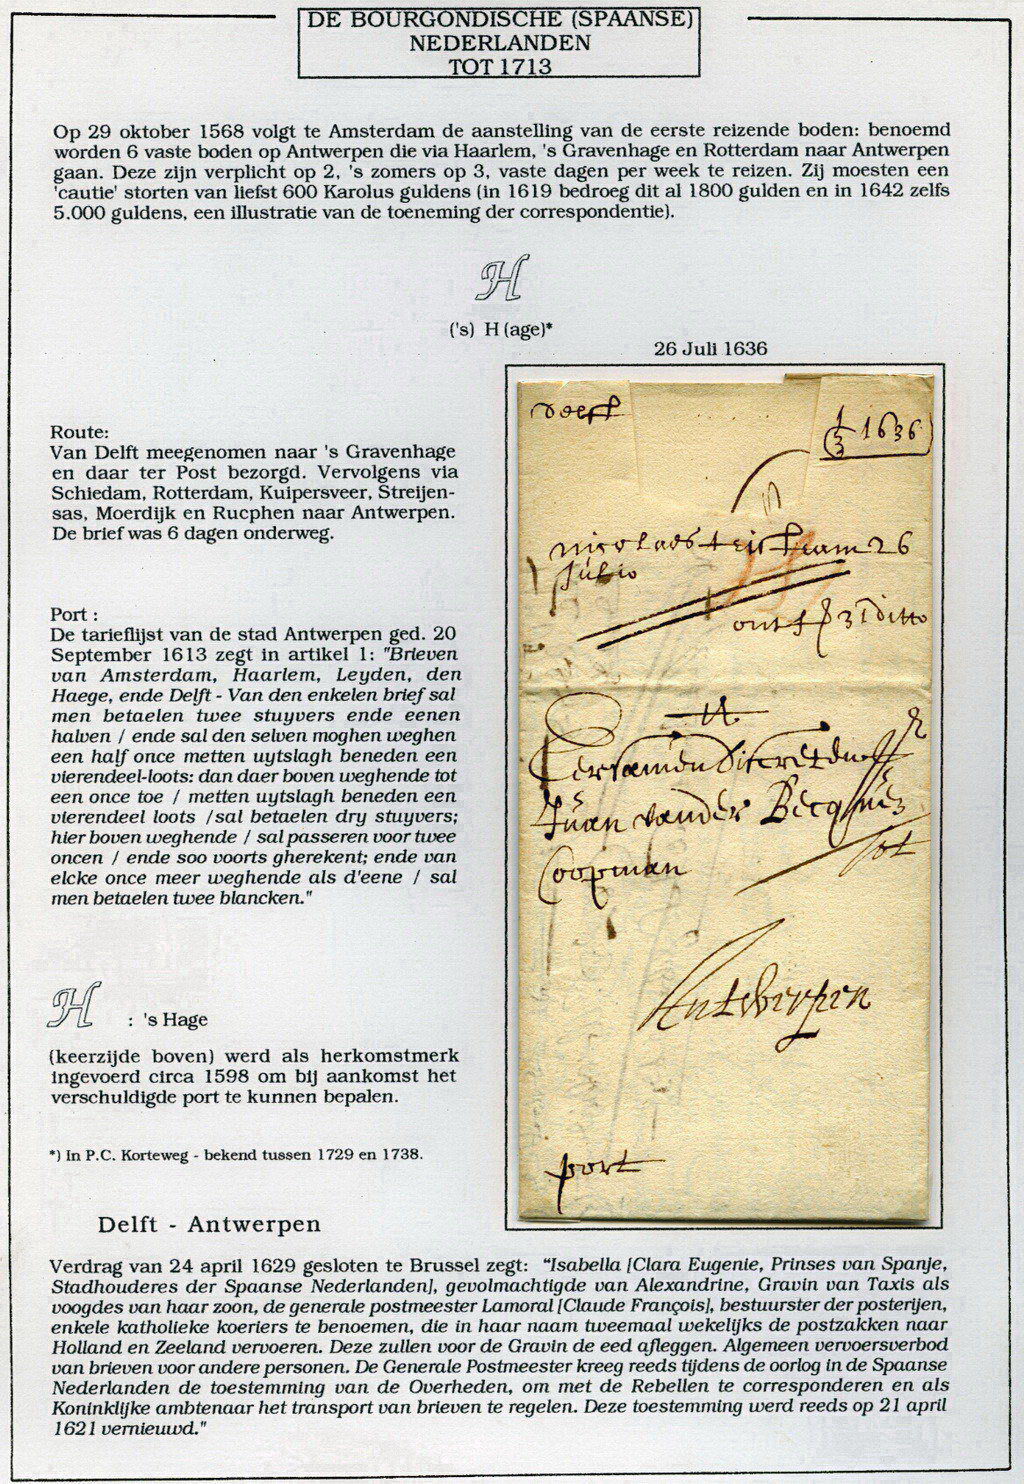 DE BOURGONDISCHE (SPAANSE)
NEDERLANDEN
TOT 1713
Op 29 oktober 1568 volgt te Amsterdam de aanstelling van de eerste reizende boden: benoemd
worden 6 vaste boden op Antwerpen die via Haarlem, 's Gravenhage en Rotterdam naar Antwerpen
gaan. Deze zijn verplicht op 2, 's zomers op 3, vaste dagen per week te reizen. Zij moesten een
'cautie' storten van liefst 600 Karolus guldens (in 1619 bedroeg dit al 1800 gulden en in 1642 zelfs
5.000 guldens, een illustratie van de toeneming der correspondentie).
H
('s) H (age)*
26 Juli 1636
Route:
Van Delft meegenomen naar 's Gravenhage
en daar ter Post bezorgd. Vervolgens via
Schiedam, Rotterdam, Kuipersveer, Streijen-
sas, Moerdijk en Rucphen naar Antwerpen.
De brief was 6 dagen onderweg.
Port :
De tarieflijst van de stad Antwerpen ged. 20
September 1613 zegt in artikel 1: "Brieven
van Amsterdam, Haarlem, Leyden, den
Haege, ende Delft - Van den enkelen brief sal
men betaelen twee stuyvers ende eenen
halven / ende sal den selven moghen weghen
een half once metten uytslagh beneden een
vierendeel-loots: dan daer boven weghende tot
een once toe / metten uytslagh beneden een
vierendeel loots /sal betaelen dry stuyvers;
hier boven weghende / sal passeren voor twee
oncen / ende soo voorts gherekent; ende van
elcke once meer weghende als d'eene / sal
men betaelen twee blancken."
H : 's Hage
(keerzijde boven) werd als herkomstmerk
ingevoerd circa 1598 om bij aankomst het
verschuldigde port te kunnen bepalen.
*) In P.C. Korteweg - bekend tussen 1729 en 1738.
Delft - Antwerpen
delft
1/3 1636
nicolaes 26
Julio
ontf 31 ditto
Eersamen Discreten
Juan vander Becq
Coopman
tot
Antwerpen
port
Verdrag van 24 april 1629 gesloten te Brussel zegt: "Isabella [Clara Eugenie, Prinses van Spanje,
Stadhouderes der Spaanse Nederlanden], gevolmachtigde van Alexandrine, Gravin van Taxis als
voogdes van haar zoon, de generale postmeester Lamoral [Claude François], bestuurster der posterijen,
enkele katholieke koeriers te benoemen, die in haar naam tweemaal wekelijks de postzakken naar
Holland en Zeeland vervoeren. Deze zullen voor de Gravin de eed afleggen. Algemeen vervoersverbod
van brieven voor andere personen. De Generale Postmeester kreeg reeds tijdens de oorlog in de Spaanse
Nederlanden de toestemming van de Overheden, om met de Rebellen te corresponderen en als
Koninklijke ambtenaar het transport van brieven te regelen. Deze toestemming werd reeds op 21 april
1621 vernieuwd."